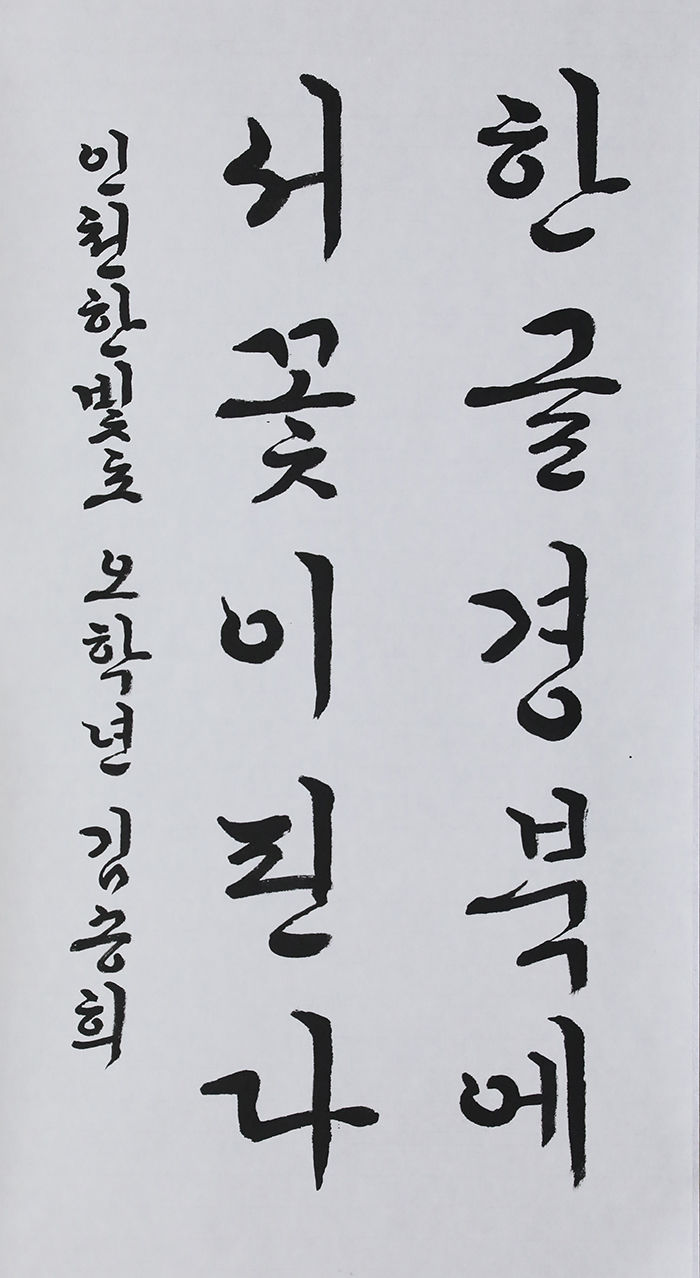 한글경북에
서꽃이핀다
인천한빛초 오학년